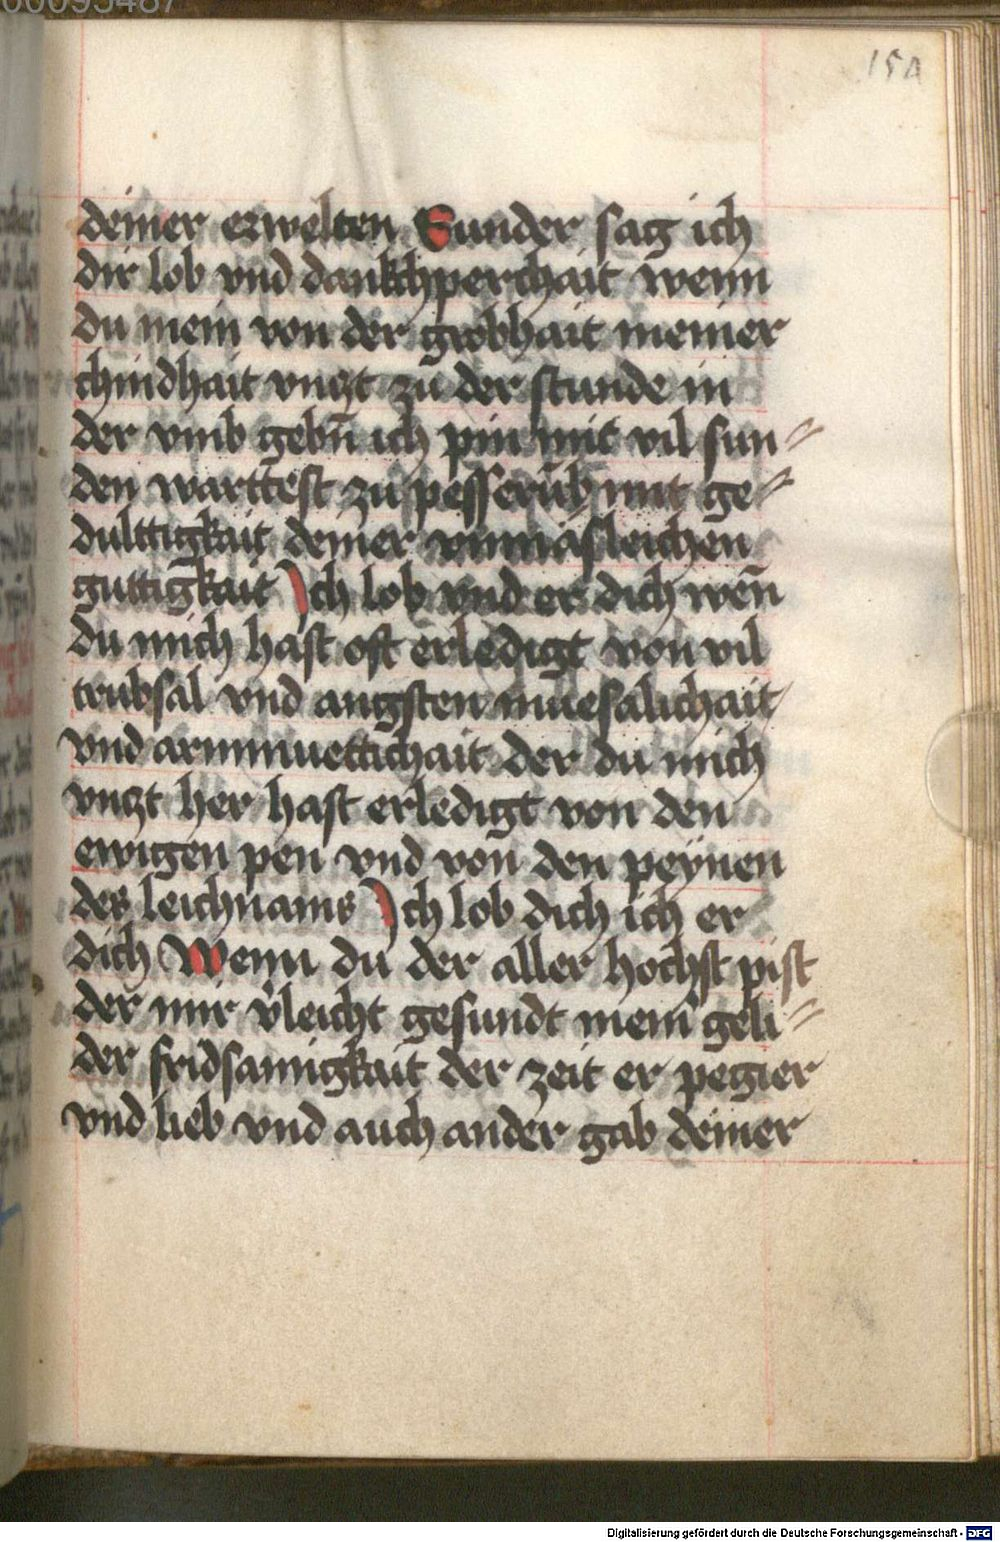 00095487
154
deiner erwelten Sunder sag ich
dir lob vnd dankchperchait wenn
du mein von der grobhait meiner
chindhait vnczt zu der stunde in
der vmb gebn̄ ich pin mit vil sun⸗
den warttest zu pesserūg mit ge⸗
dulttigkait deiner vnmasleichen
guttigkait Ich lob vnd er dich wen̄
du mich hast oft erledigt von vil
trubsal vnd angsten muesalichait
vnd armmuettichait der du mich
vnczt her hast erledigt von den
ewigen pen vnd von den peynen
des leichnams Ich lob dich ich er
dich Wenn du der aller hochst pist
der mir v̓leicht gesundt mein geli⸗
der fridsamigkait der zeit er pegier
vnd lieb vnd auch ander gab deiner
Digitalisierung gefördert durch die Deutsche Forschungsgemeinschaft - DFG